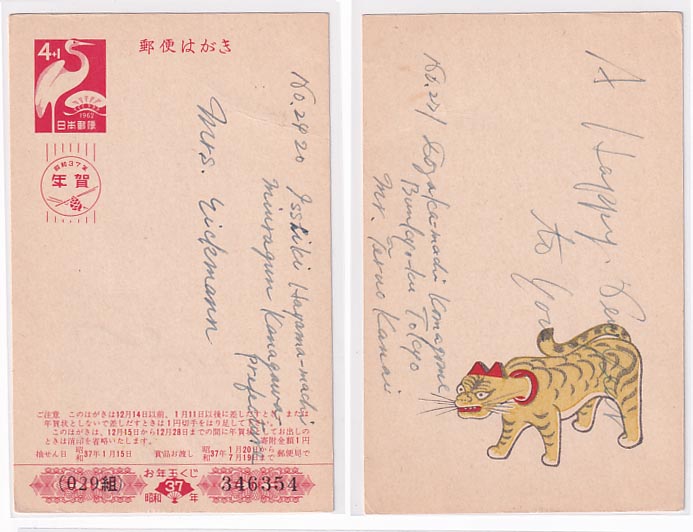 4+1
1962
日本郵便
郵便はがき
昭和37年
年賀
No. 2420 Isshiki Hayama-machi
Miuragun Kanagawa
Prefecture
Mrs. Eickmann
ご注意 このはがきは12月14日以前、1月11日以後に差しだすとき、または
年賀状としないで差しだすときは1円切手をはり足してください。
このはがきは、12月15日から12月28日までの間に年賀状としてお出しの
ときは消印を省略いたします。 寄附金額1円
抽せん日 昭和37年1月15日 賞品お渡し 昭和37年 1月20日から 7月19日まで 郵便局で
お年玉くじ
(029組)
昭和 37 年
346354
A Happy New
to You
Komagome
Bunkyo-ku Tokyo
Mr. Teruo Kanai